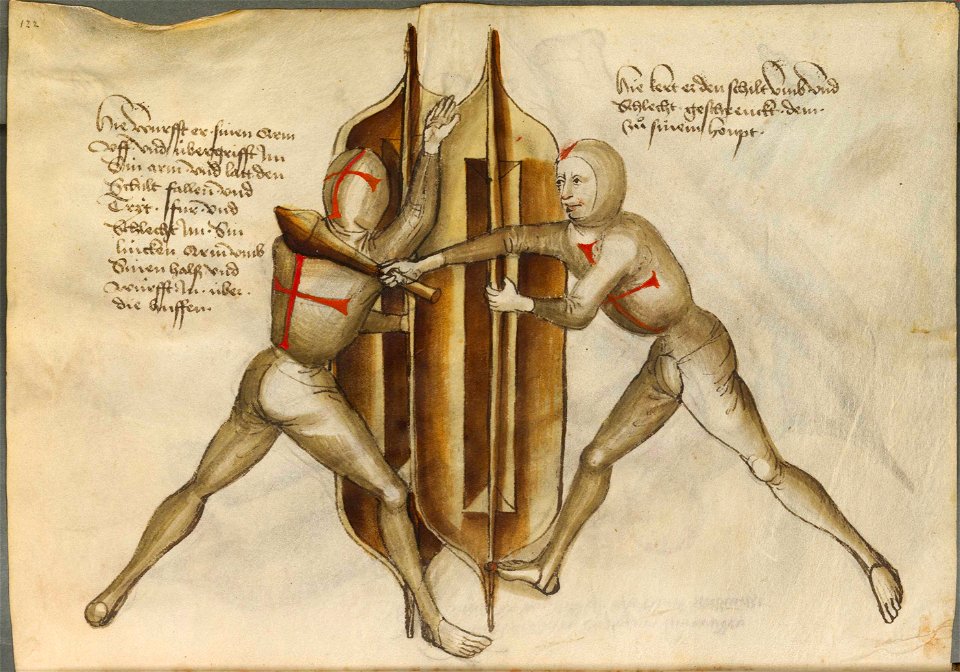 122
Hie wurfft er sinen Arm
vff vnd übergrifft Im
Sin arm vnd latt den
Schilt fallen vnd
Tryt · für · vnd
Schlecht Im · Sin
lincken Arm vmb
Sinen halß vnd
wurfft In · über ·
die huffen ·
Hie kert er den schilt vmb vnd
Schlecht · geschrenckt · dem ·
zů sinem houpt ·